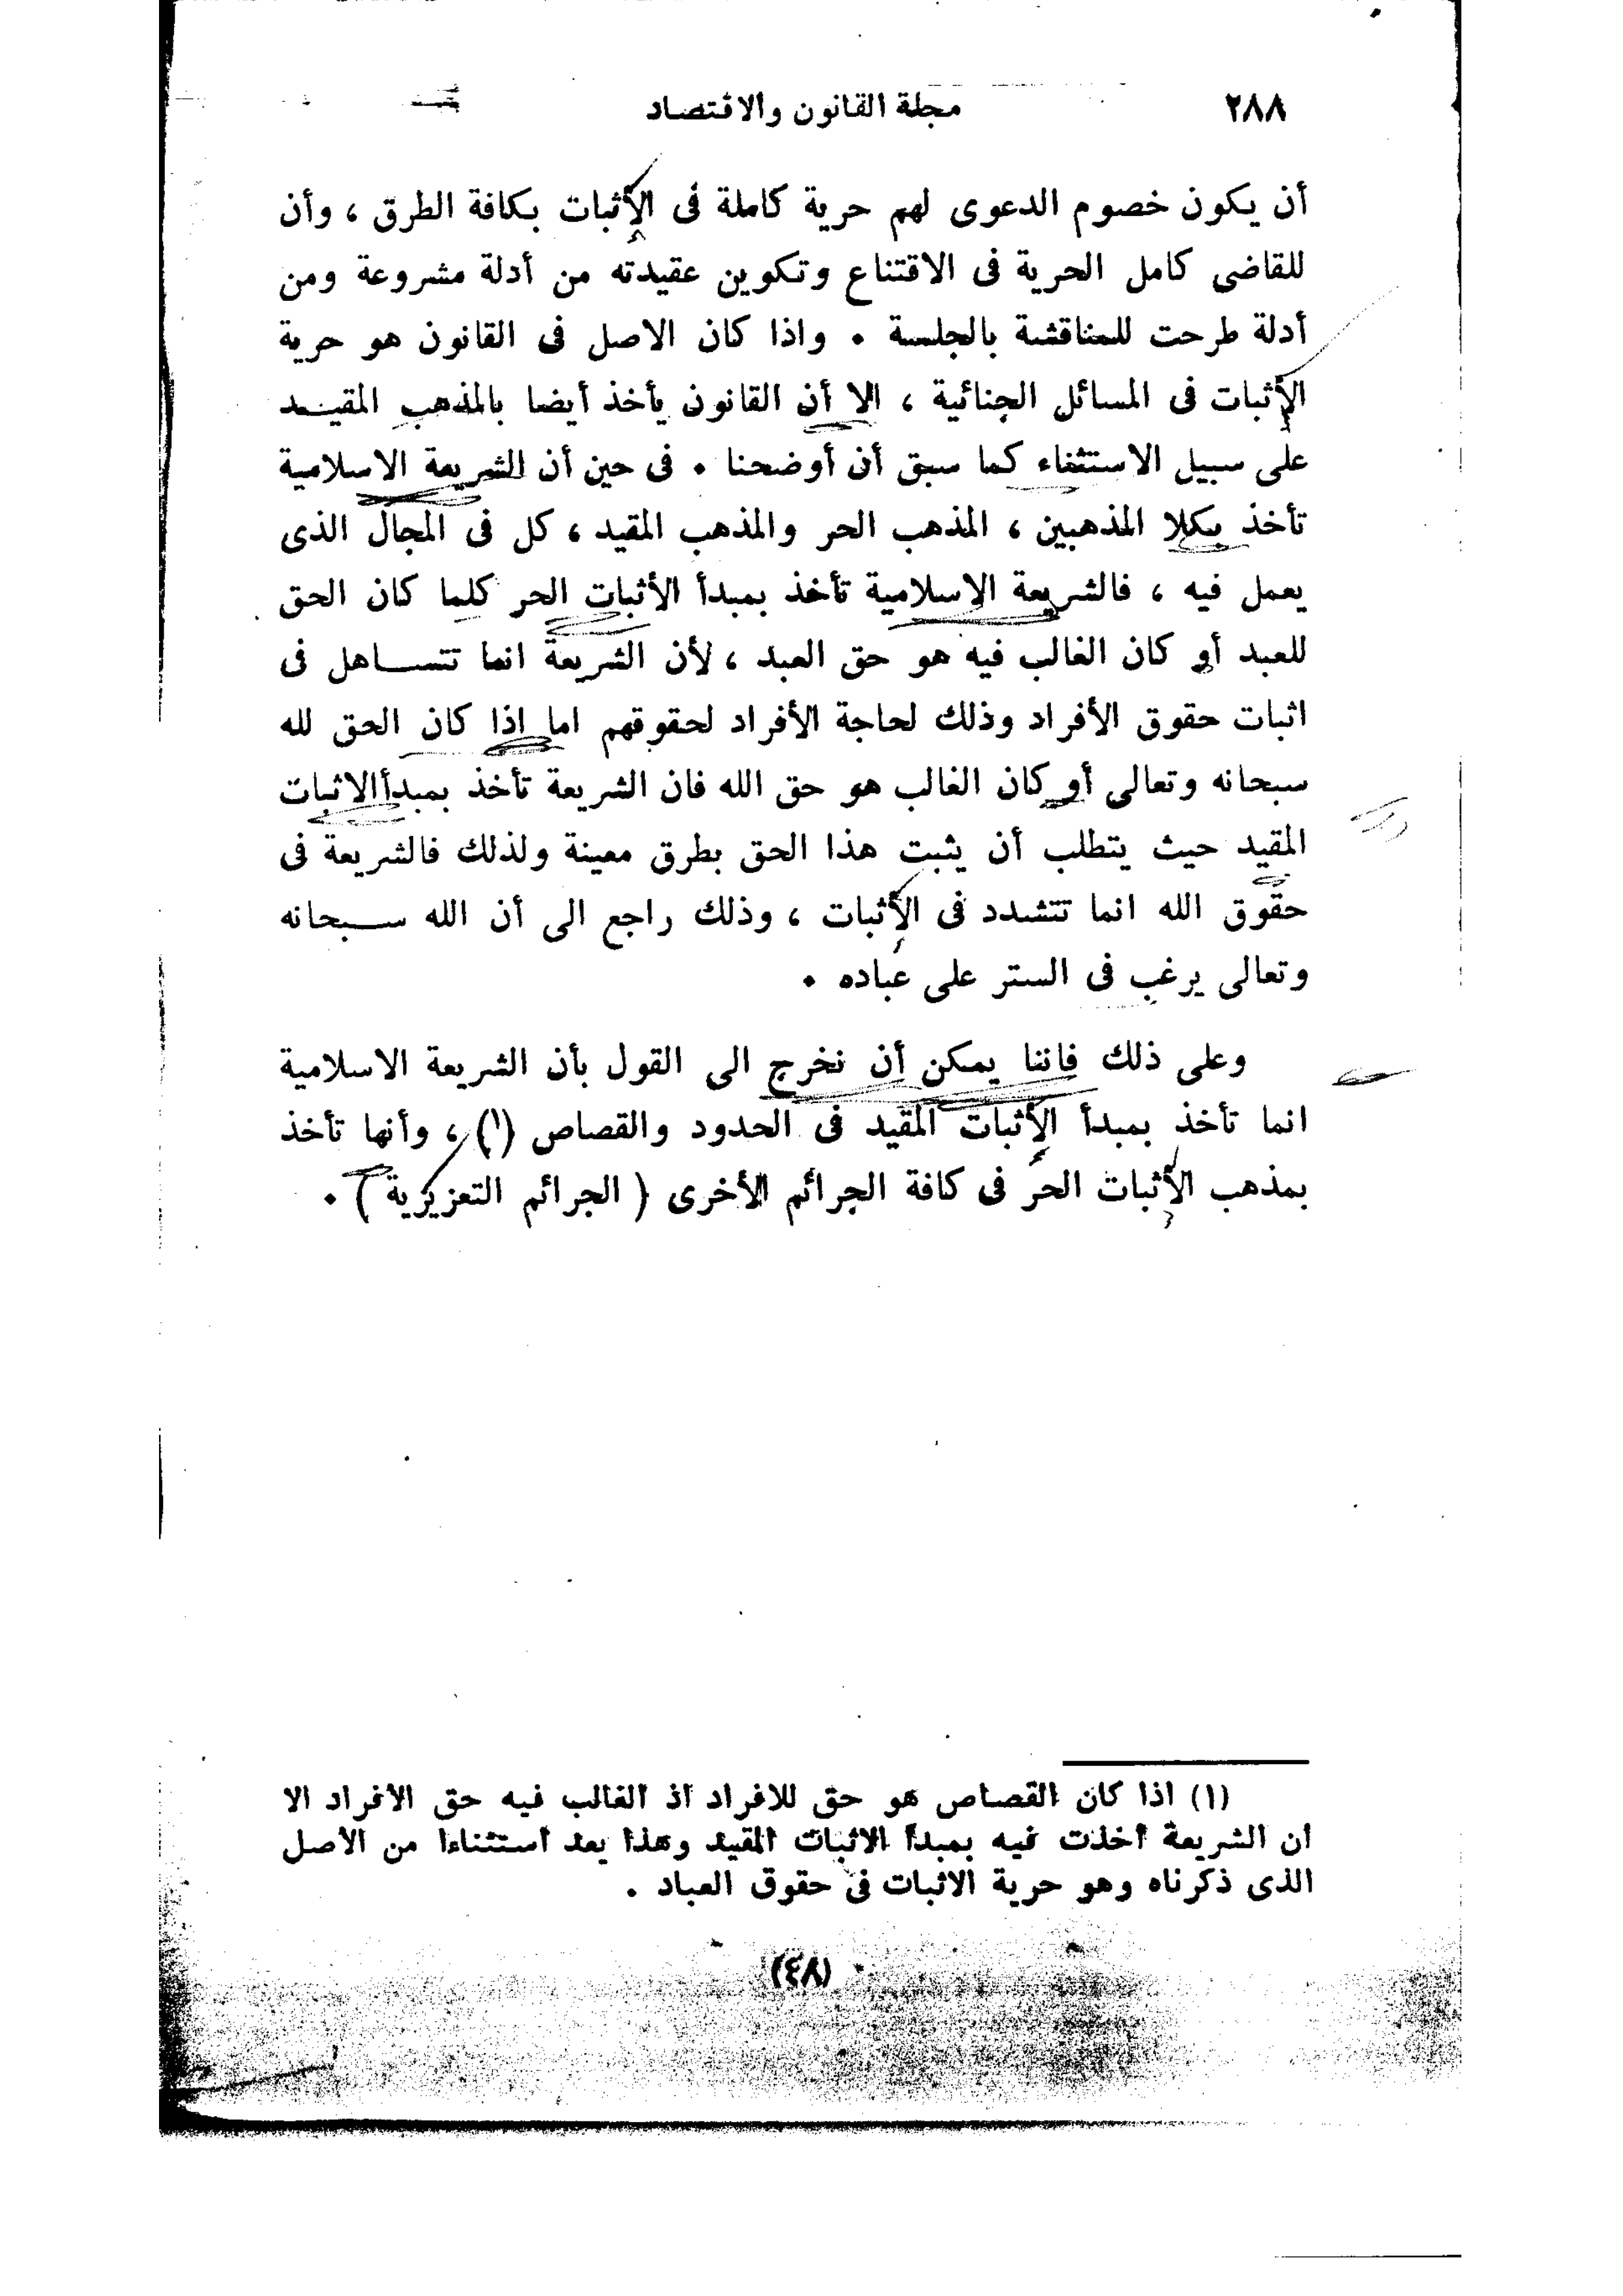 ٢٨٨
مجلة القانون والاقتصاد
أن يكون خصوم الدعوى لهم حرية كاملة فى الأثبات بكافة الطرق ، وأن
للقاضى كامل الحرية فى الاقتناع وتكوين عقيدته من أدلة مشروعة ومن
أدلة طرحت للمناقشة بالجلسة . واذا كان الاصل فى القانون هو حرية
الأثبات فى المسائل الجنائية ، الا أن القانون يأخذ أيضا بالمذهب المقيد
على سبيل الاستثناء كما سبق أن أوضحنا . فى حين أن الشريعة الاسلامية
تأخذ بكلا المذهبين ، المذهب الحر والمذهب المقيد ، كل فى المجال الذى
يعمل فيه ، فالشريعة الاسلامية تأخذ بمبدأ الأثبات الحر كلما كان الحق
للعبد أو كان الغالب فيه هو حق العبد ، لأن الشريعة انما تتساهل فى
اثبات حقوق الأفراد وذلك لحاجة الأفراد لحقوقهم اما اذا كان الحق لله
سبحانه وتعالى أو كان الغالب هو حق الله فان الشريعة تأخذ بمبدأ الاثبات
المقيد حيث يتطلب أن يثبت هذا الحق بطرق معينة ولذلك فالشريعة فى
حقوق الله انما تتشدد فى الأثبات ، وذلك راجع الى أن الله سبحانه
وتعالى يرغب فى الستر على عباده .
وعلى ذلك فاننا يمكن أن نخرج الى القول بأن الشريعة الاسلامية
انما تأخذ بمبدأ الأثبات المقيد فى الحدود والقصاص (١) ، وأنها تأخذ
بمذهب الأثبات الحر فى كافة الجرائم الأخرى ( الجرائم التعزيزية ) .
(١) اذا كان القصاص هو حق للافراد اذ الغالب فيه حق الافراد الا
ان الشريعة أخذت فيه بمبدأ الاثبات المقيد وهذا يعد استثناءا من الاصل
الذى ذكرناه وهو حرية الاثبات فى حقوق العباد .
(٤٨)